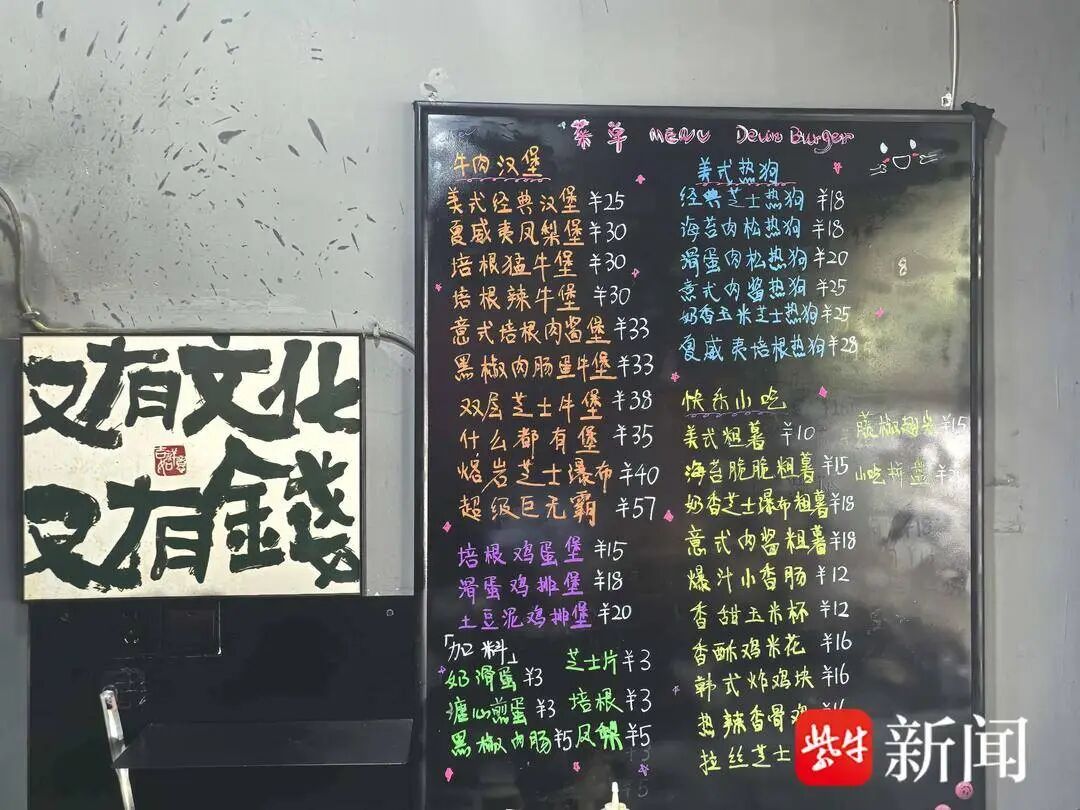 菜单 MENU Devin Burger
牛肉汉堡
美式经典汉堡 ¥25
夏威夷凤梨堡 ¥30
培根猛牛堡 ¥30
培根辣牛堡 ¥30
意式培根肉酱堡 ¥33
黑椒肉肠蛋牛堡 ¥33
双层芝士牛堡 ¥38
什么都有堡 ¥35
熔岩芝士瀑布 ¥40
超级巨无霸 ¥57
培根鸡蛋堡 ¥15
滑蛋鸡排堡 ¥18
土豆泥鸡排堡 ¥20
「加料」
奶滑蛋 ¥3 芝士片 ¥3
溏心煎蛋 ¥3 培根 ¥3
黑椒肉肠 ¥5 凤梨 ¥5
美式热狗
经典芝士热狗 ¥18
海苔肉松热狗 ¥18
滑蛋肉松热狗 ¥20
意式肉酱热狗 ¥25
奶香玉米芝士热狗 ¥25
夏威夷培根热狗 ¥28
快乐小吃
美式粗薯 ¥10
海苔脆脆粗薯 ¥15
奶香芝士瀑布粗薯 ¥18
意式肉酱粗薯 ¥18
爆汁小香肠 ¥12
香甜玉米杯 ¥12
香酥鸡米花 ¥16
韩式炸鸡块 ¥16
热辣香骨鸡
拉丝芝士
藤椒翅尖 ¥15
小吃拼盘
又有文化
又有錢
吉祥如意
紫牛新闻